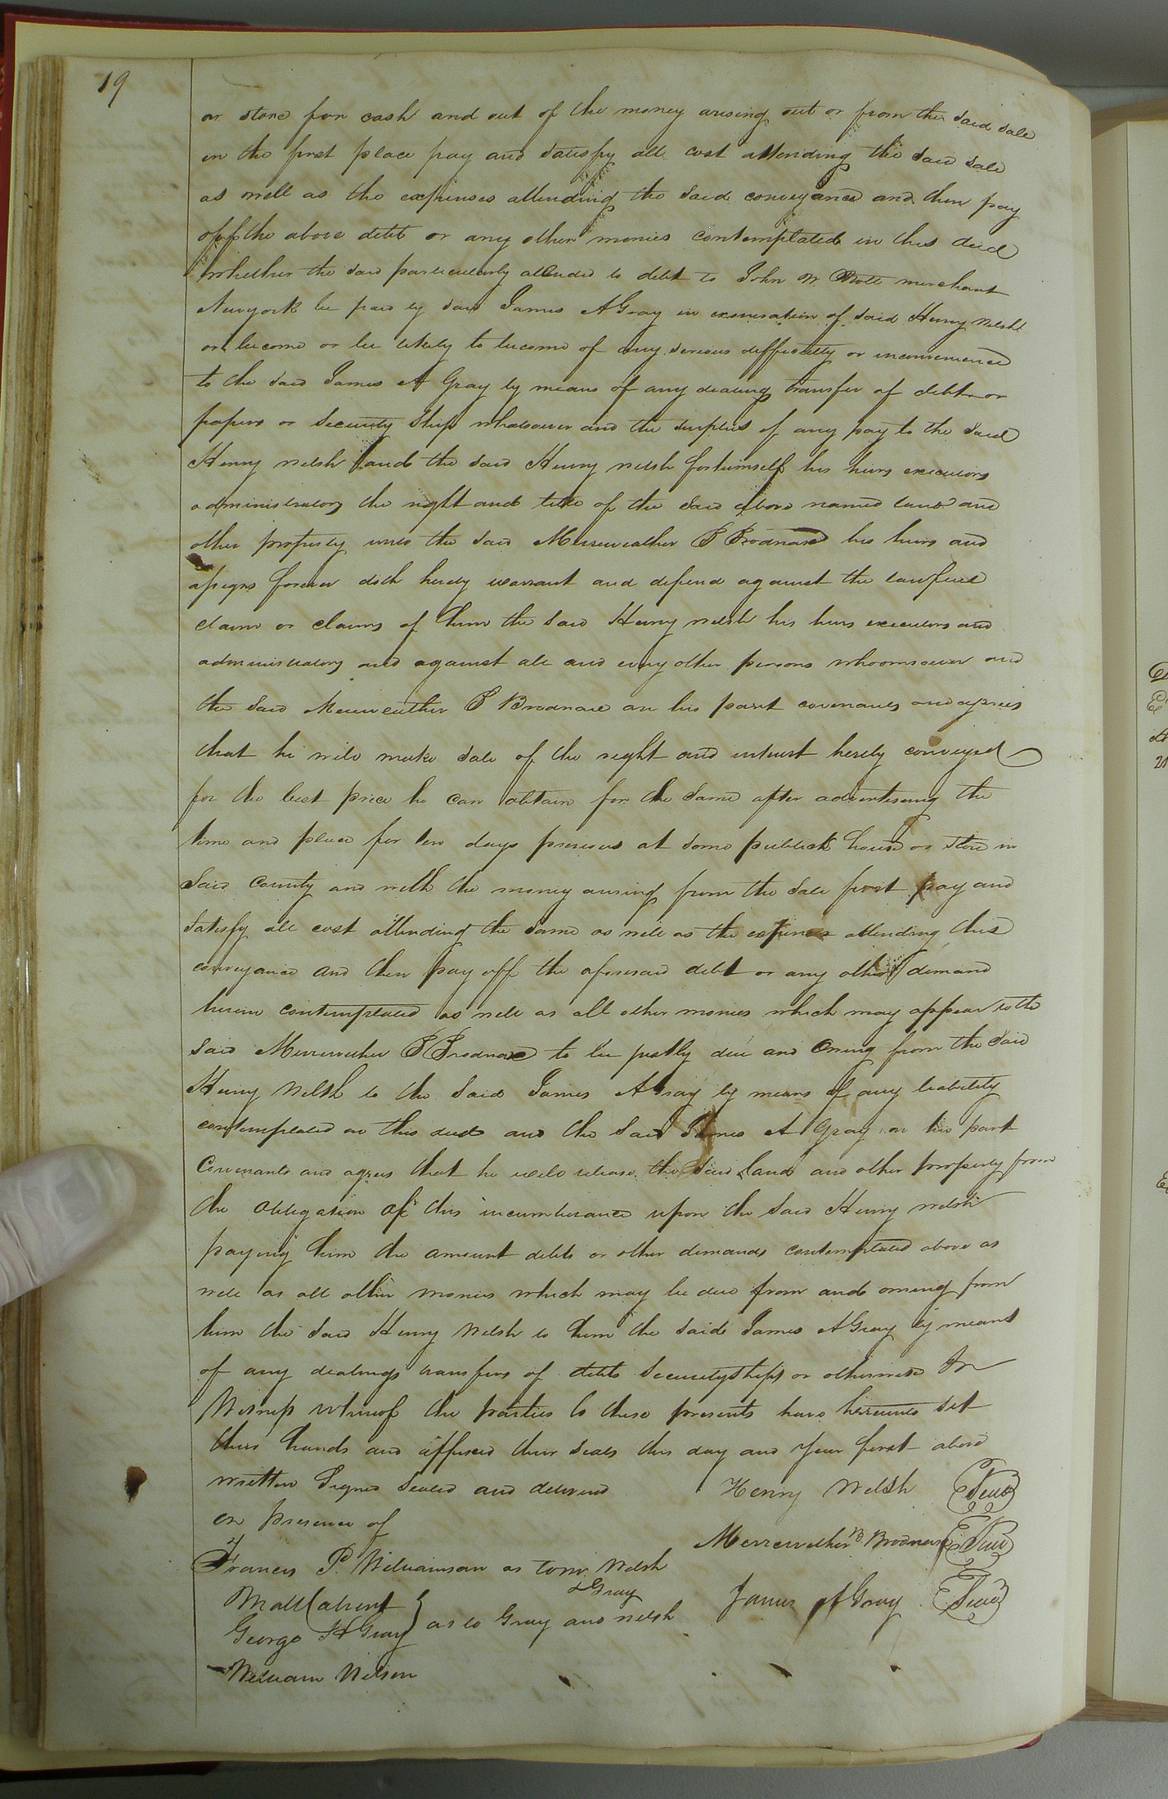 19
or store for cash and out of the money arising out or from the said sale
in the first place pay and satisfy all cost attending the said sale
as well as the expenses attending the said conveyance and then pay
off the above debt or any other monies contemplated in this deed
whether the said particularly alluded to debt to John W merchant
Newyork be paid by said James A Gray in exoneration of said Henry Welsh
or become or be likely to become of any serious difficulty or inconvenience
to the said James A Gray by means of any dealing transfer of debts or
papers or security ship whatsoever and the surplus if any pay to the said
Henry Welsh and the said Henry Welsh for himself his heirs executors
administrators the right and title of the said above named land and
other property unto the said Merreweather B Brodnax his heirs and
assigns forever doth hereby warrant and defend against the lawfull
claim or claims of him the said Henry Welsh his heirs executors and
administrators and against all and every other persons whoomsoever and
the said Merreweather B Brodnax on his part covenants and agrees
that he will make sale of the right and interest hereby conveyed
for the best price he can obtain for the same after advertising the
time and place for ten days previous at some publick house or store in
said County and with the money arising from the sale first pay and
satisfy all cost attending the same as well as the expenses attending this
conveyance and then pay off the aforesaid debt or any other demand
herein contemplated as well as all other monies which may appear to the
said Merreweather B Brodnax to be justly due and owing from the said
Henry Welsh to the said James A Gray by means of any liability
contemplated in this deed and the said James A Gray on his part
Covenants and agrees that he will release the said land and other property from
the obligation of this incumberance upon the said Henry Welsh
paying him the amount debts or other demands contemplated above as
well as all other monies which may be due from and owing from
him the said Henry Welsh to him the said James A Gray by means
of any dealings transfers of debts securityships or otherwise In
Witness whereof the parties to these presents have hereunto set
their hands and affixed their seals this day and year first above
written Signed sealed and delivered Henry Welsh Seal
in presence of
Merrewether B Brodnax Seal
Francis P. Williamson as to Welsh
& Gray
James A Gray Seal
George H Gray as to Gray and Welsh
William Wilson